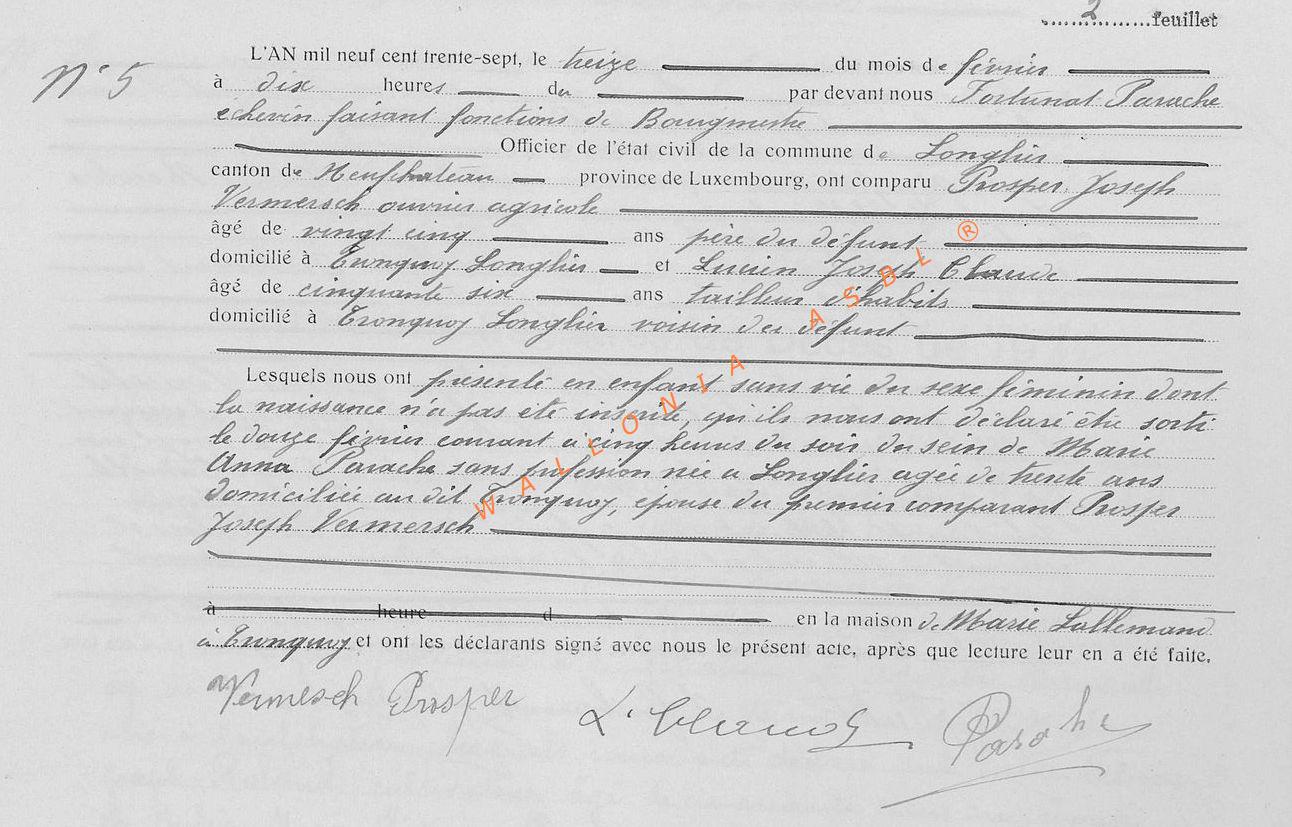 2 feuillet
N° 5
L'AN mil neuf cent trente-sept, le treize du mois de février
à dix heures du par devant nous Fortunat Parache
echevin faisant fonctions de Bourgmestre
Officier de l'état civil de la commune de Longlier
canton de Neufchateau province de Luxembourg, ont comparu Prosper Joseph
Vermersch ouvrier agricole
âgé de vingt cinq ans père du défunt
domicilié à Tronquoy Longlier et Lucien Joseph Claude
âgé de cinquante six ans tailleur d'habits
domicilié à Tronquoy Longlier voisin du défunt
Lesquels nous ont présenté en enfant sans vie du sexe féminin dont
la naissance n'a pas été inscrite, qu'ils nous ont déclaré être sorti
le douze février courant à cinq heures du soir du sein de Marie
Anna Parache sans profession née a Longlier agée de trente ans
domiciliée au dit Tronquoy, epouse du premier comparant Prosper
Joseph Vermersch
à heure d en la maison de Marie Lallemand
à Tronquoy et ont les déclarants signé avec nous le présent acte, après que lecture leur en a été faite,
Vermesch Prosper L. Claude Parache
WALLONIA ASBL ®